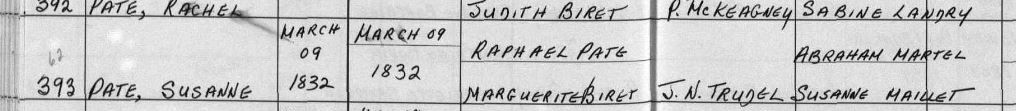 392 PATE, RACHEL JUDITH BIRET P. MCKEAGNEY SABINE LANDRY
MARCH 09 1832 MARCH 09 1832 RAPHAEL PATE ABRAHAM MARTEL
62
393 PATE, SUSANNE MARGUERITE BIRET J.N. TRUDEL SUSANNE MAILLET